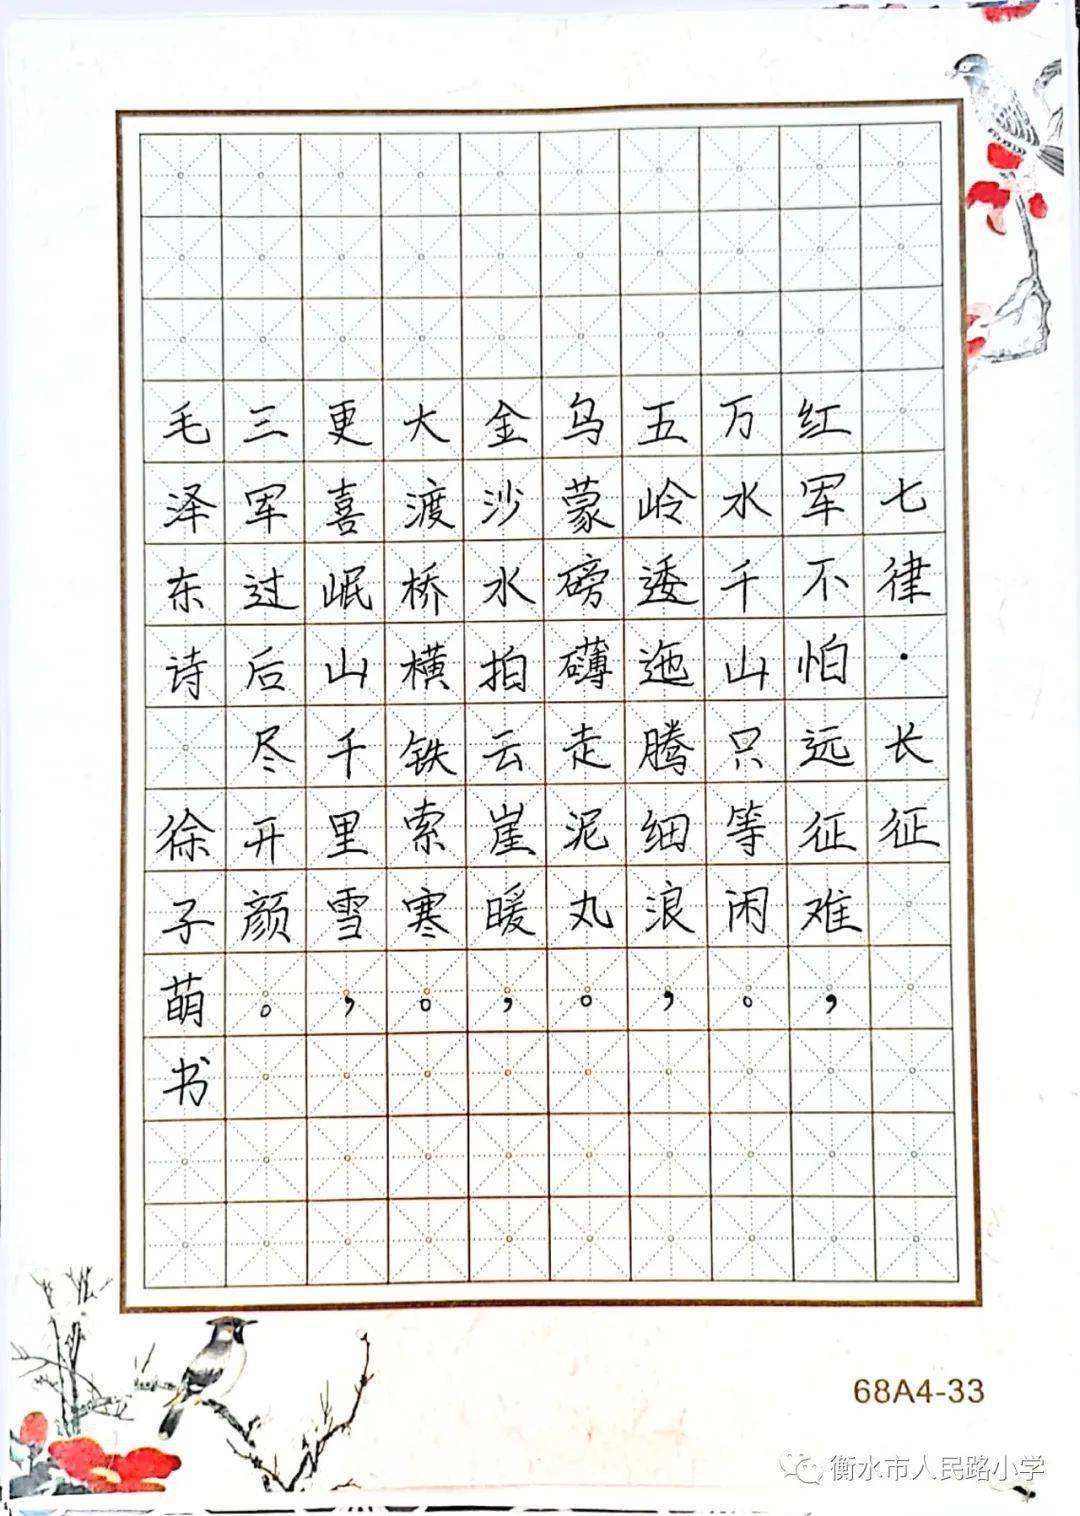 七律·长征
红军不怕远征难，
万水千山只等闲。
五岭逶迤腾细浪，
乌蒙磅礴走泥丸。
金沙水拍云崖暖，
大渡桥横铁索寒。
更喜岷山千里雪，
三军过后尽开颜。
毛泽东诗 徐子萌书
68A4-33
衡水市人民路小学